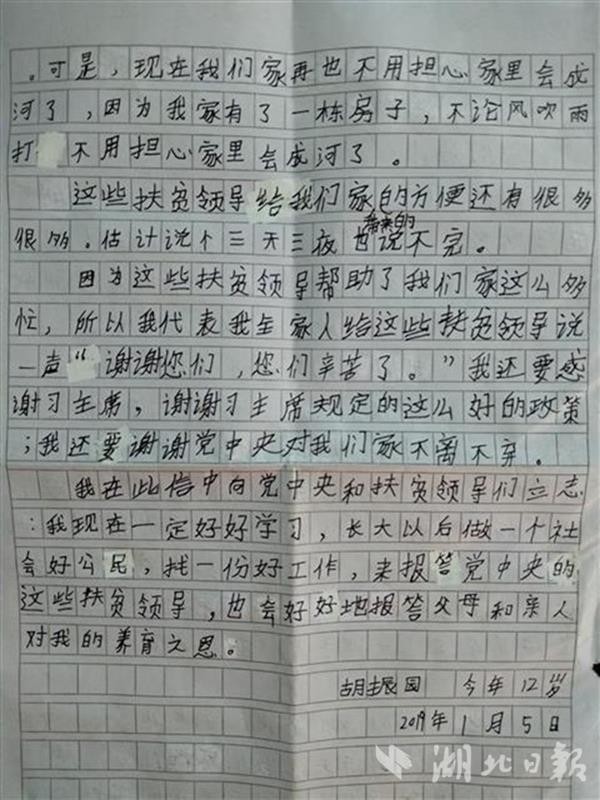 。可是，现在我们家再也不用担心家里会成
河了，因为我家有了一栋房子，不论风吹雨
打 不用担心家里会成河了。
这些扶贫领导给我们家的方便还有很多
带来的
很多。估计说个三天三夜也说不完。
因为这些扶贫领导帮助了我们家这么多
忙，所以我代表我全家人给这些扶贫领导说
一声“谢谢您们，您们辛苦了。”我还要感
谢习主席，谢谢习主席规定的这么好的政策
；我还要谢谢党中央对我们家不离不弃。
我在此信中向党中央和扶贫领导们立志
：我现在一定好好学习，长大以后做一个社
会好公民，找一份好工作，来报答党中央的
这些扶贫领导，也会好好地报答父母和亲人
对我的养育之恩。
胡 园 今年12岁
2019年1月5日
湖北日報